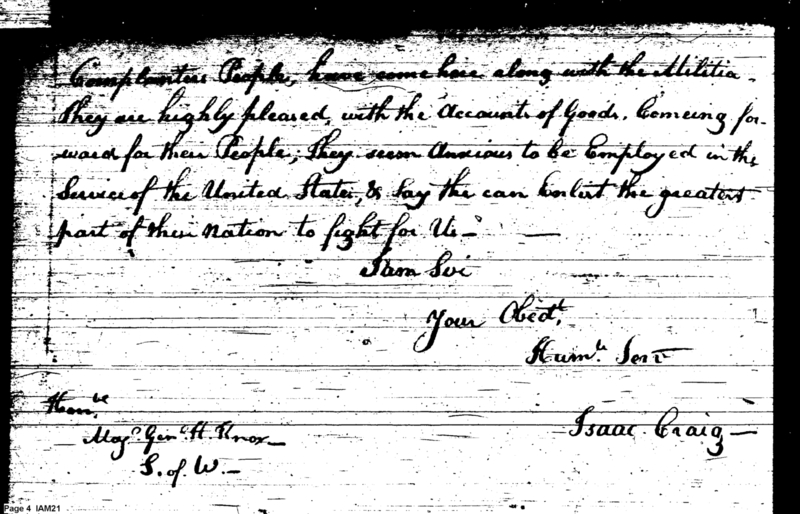 Complanters People, have come here along with the Militia
They are highly pleased, with the Accounts of Goods. Comeing for-
ward for their People; They seem Anxious to be Employed in the
Service of the United States, & Say the can Enlist the greatest
part of their Nation to fight for Us —
I am Sir
Your Obedt.
Humle. Servt
Honbe.
Majr. Genl. H. Knox —
S. of W. —
Isaac Craig —
Page 4 IAM21